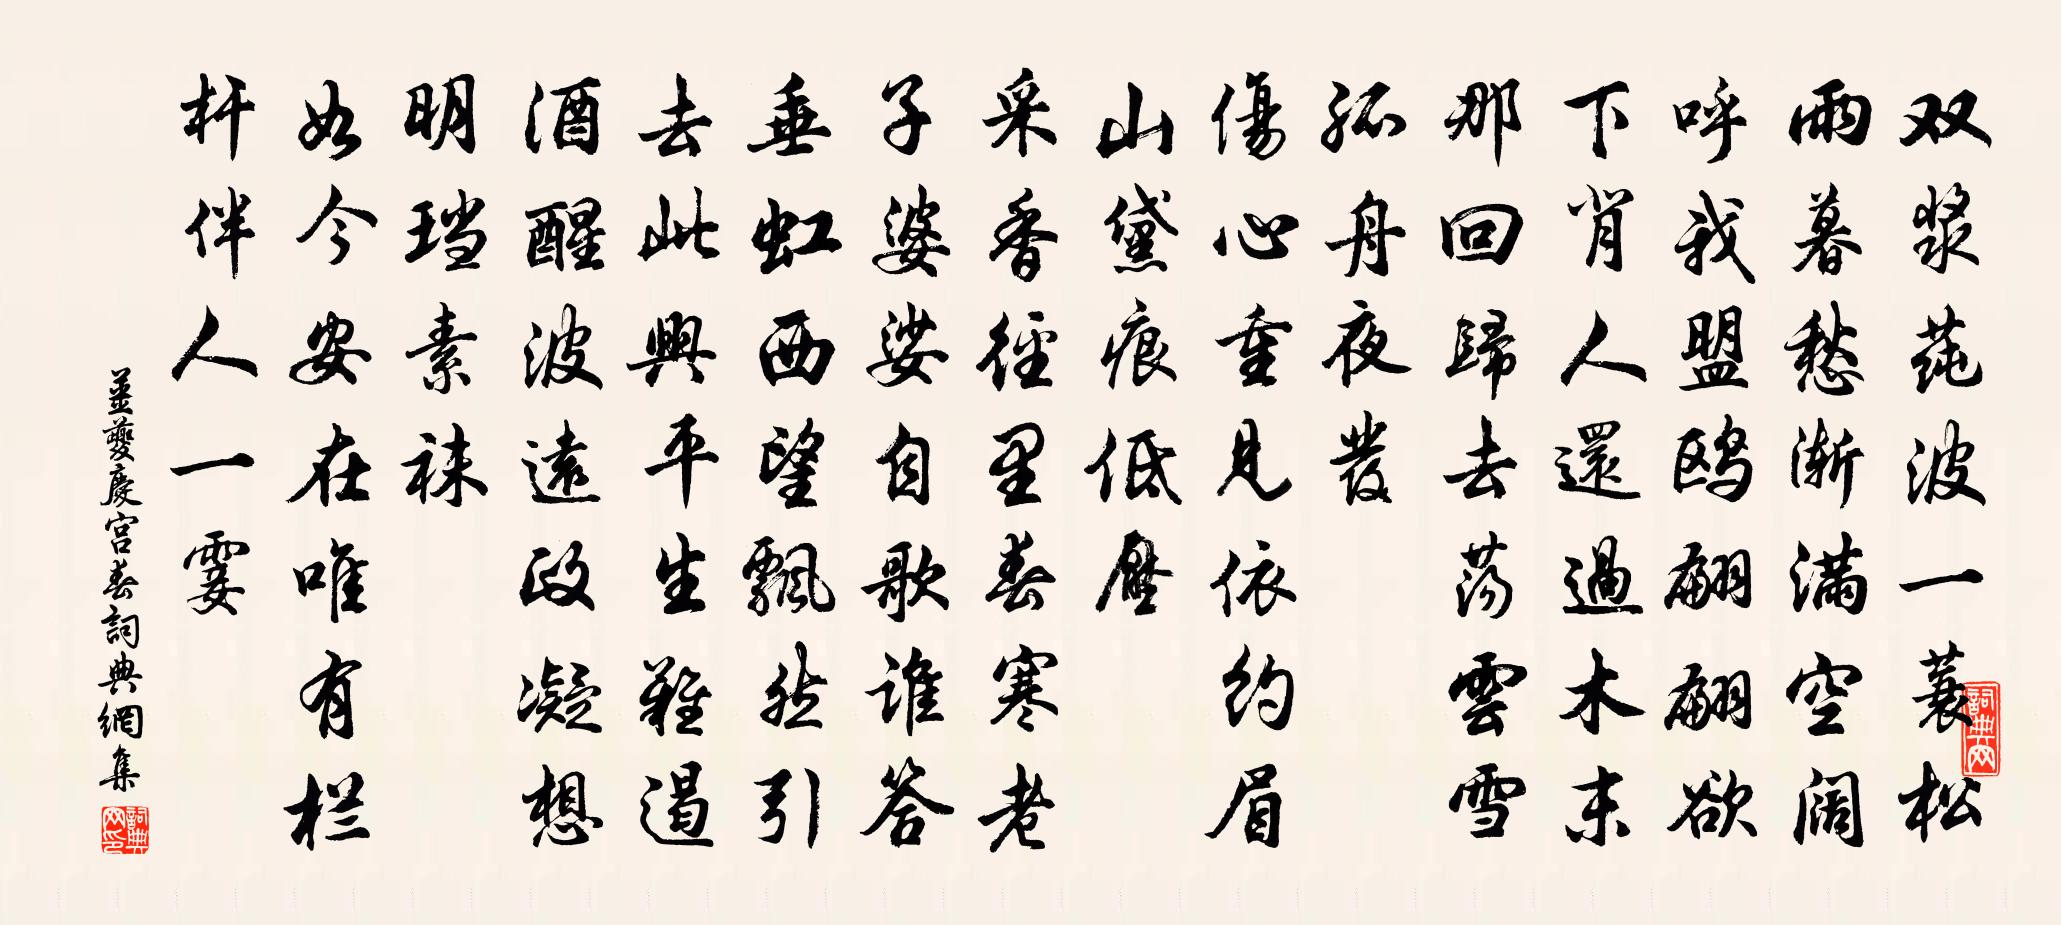 双浆莼波一蓑松
雨暮愁渐满空阔
呼我盟鸥翩翩欲
下背人還過木末
那回歸去荡雲雪
孤舟夜發
傷心重見依约眉
山黛痕低壓
采香徑里春寒老
子婆娑自歌谁答
垂虹西望飘然引
去此興平生難遏
酒醒波遠政凝想
明珰素袜
如今安在唯有栏
杆伴人一霎
姜夔慶宫春詞典網集
詞典网
詞典网印